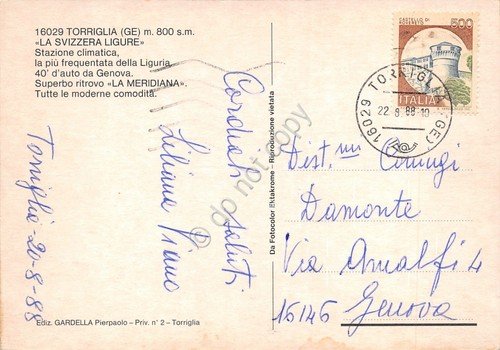 16029 TORRIGLIA (GE) m. 800 s.m.
«LA SVIZZERA LIGURE»
Stazione climatica,
la più frequentata della Liguria,
40' d'auto da Genova.
Superbo ritrovo «LA MERIDIANA».
Tutte le moderne comodità.
Torriglia 20-8-88
Cordiali saluti
Liliana
Ediz. GARDELLA Pierpaolo - Priv. n° 2 - Torriglia
Da Fotocolor Ektakrome - Riproduzione vietata
do not copy
500
ITALIA
16029 TORRIGLIA (GE)
22.8.88
Dist.mi Coniugi
Damonte
Via Amalfi 4
15145 Genova